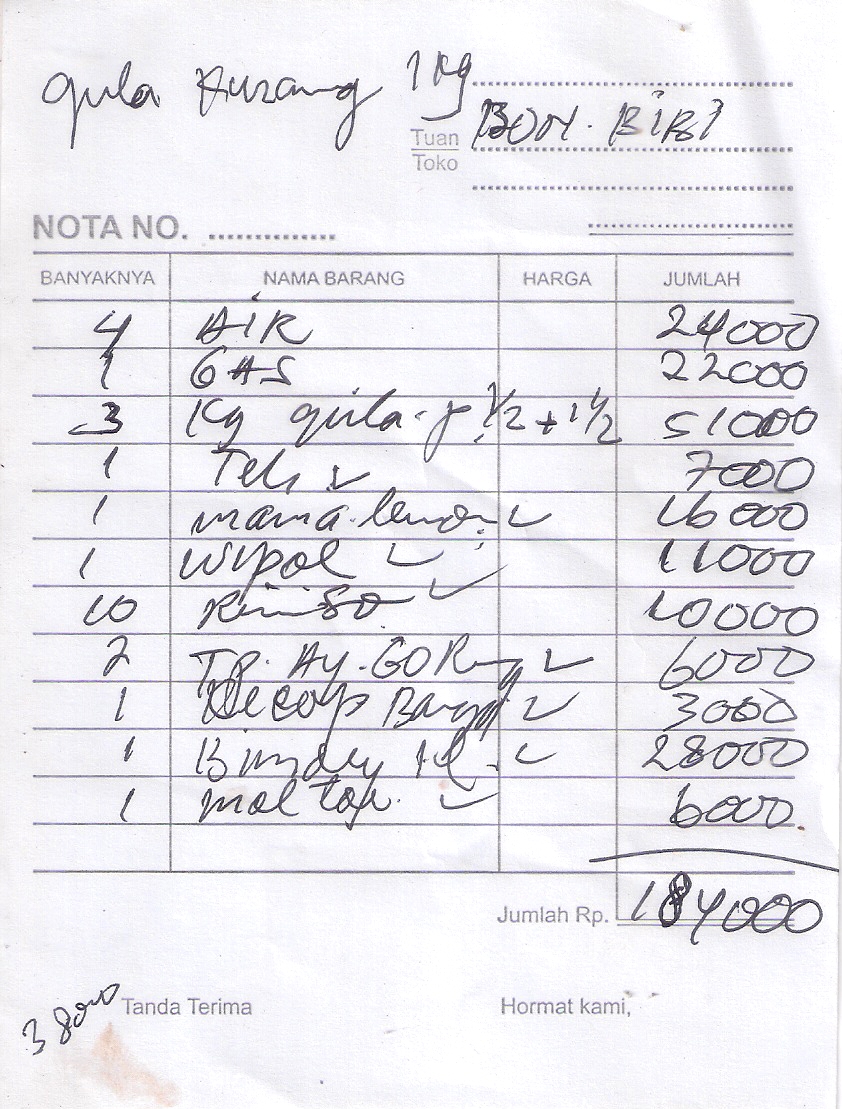 gula Kurang 1 Kg
Tuan BON. BiBi
Toko
NOTA NO. ..............
BANYAKNYA NAMA BARANG HARGA JUMLAH
4 AiR 24000
1 GAS 22000
3 Kg gula 1/2 + 1 1/2 51000
1 Teh 7000
1 mama lemon 16000
1 Wipol 11000
10 Rinso 10000
2 TP. Ay. GORng 6000
1 Kecap Bango 3000
1 Bimoly 1 L 28000
1 mol top 6000
Jumlah Rp. 184000
Tanda Terima Hormat kami,
38000